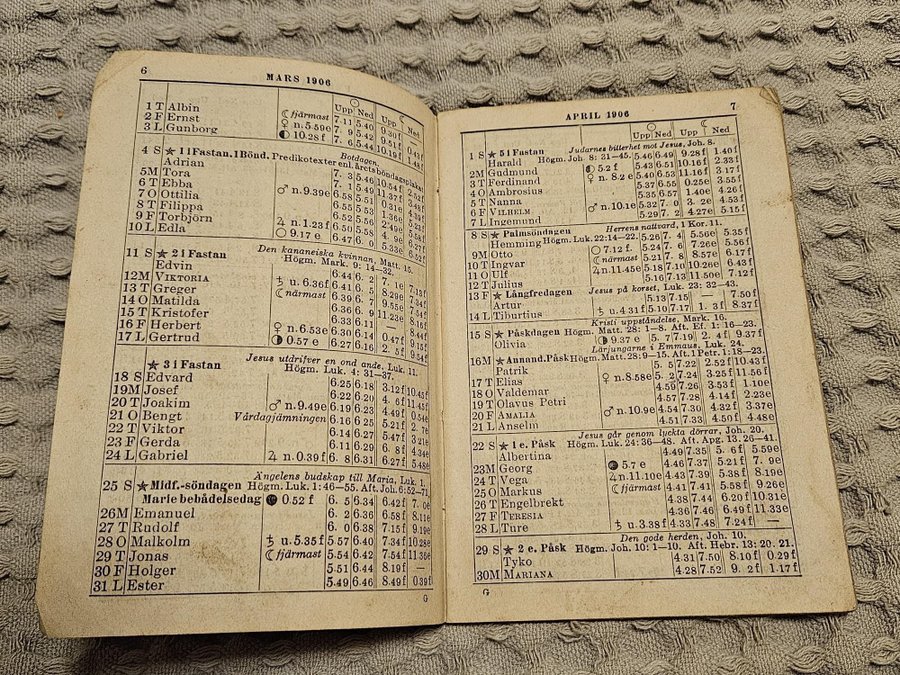 6
MARS 1906
Upp Ned Upp Ned
1 T Albin ☾ fjärmast 7.11 5.40 9.30 f
2 F Ernst ♀ n. 5.59 e 7. 9 5.42 9.51 f
3 L Gunborg ◐ 10.28 f 7. 6 5.44 10.19 f
4 S ★ 1 i Fastan. 1 Bönd. Botdagen.
Predikotexter enl. årets böndagsplakat
Adrian
5 M Tora
6 T Ebba
7 O Ottilia ♂ n. 9.39 e
8 T Filippa
9 F Torbjörn ♃ n. 1.23 f
10 L Edla ○ 9.17 e
11 S ★ 2 i Fastan Den kananeiska kvinnan, Matt. 15.
Högm. Mark. 9: 14—32.
Edvin
12 M VIKTORIA ♄ u. 6.36 f
13 T Greger ☾ närmast
14 O Matilda
15 T Kristofer
16 F Herbert ♀ n. 6.53 e
17 L Gertrud ◑ 0.57 e
★ 3 i Fastan Jesus utdrifver en ond ande, Luk. 11.
Högm. Luk. 4: 31—37.
18 S Edvard 6.25 6.18 3.12 f
19 M Josef 6.22 6.20 4. 6 f
20 T Joakim ♂ n. 9.49 e 6.19 6.23 4.49 f
21 O Bengt Vårdagjämningen 6.16 6.25 5.21 f
22 T Viktor 6.14 6.27 5.47 f
23 F Gerda 6.11 6.29 6. 8 f
24 L Gabriel ♃ n. 0.39 f 6. 8 6.31 6.27 f 5.48 e
25 S ★ Midf.-söndagen Ängelens budskap till Maria, Luk. 1.
Högm. Luk. 1: 46—55. Aft. Joh. 6: 52—71.
Marie bebådelsedag ● 0.52 f 6. 5 6.34 6.42 f 7. 0 e
26 M Emanuel 6. 2 6.36 6.58 f 8.11 e
27 T Rudolf 6. 0 6.38 7.15 f 9.19 e
28 O Malkolm ♄ u. 5.35 f 5.57 6.40 7.34 f 10.28 e
29 T Jonas ☾ fjärmast 5.54 6.42 7.54 f 11.35 e
30 F Holger 5.51 6.44 8.19 f —
31 L Ester 5.49 6.46 8.49 f 0.39 f
G
7
APRIL 1906
Upp Ned Upp Ned
1 S ★ 5 i Fastan Judarnes bitterhet mot Jesus, Joh. 8.
Högm. Joh. 8: 31—45.
Harald 5.46 6.49 9.28 f 1.40 f
2 M Gudmund ◐ 5.2 f 5.43 6.51 10.16 f 2.33 f
3 T Ferdinand ♀ n. 8.2 e 5.40 6.53 11.16 f 3.17 f
4 O Ambrosius 5.37 6.55 0.25 e 3.55 f
5 T Nanna 5.35 6.57 1.40 e 4.26 f
6 F VILHELM ♂ n. 10.1 e 5.32 7. 0 3. 2 e 4.53 f
7 L Ingemund 5.29 7. 2 4.27 e 5.15 f
8 S ★ Palmsöndagen Herrens nattvard, 1 Kor. 11.
Högm. Luk. 22: 14—22.
Hemming 5.26 7. 4 5.56 e 5.35 f
9 M Otto ○ 7.12 f. 5.24 7. 6 7.26 e 5.56 f
10 T Ingvar ☾ närmast 5.21 7. 8 8.57 e 6.17 f
11 O Ulf ♃ n. 11.45 e 5.18 7.10 10.26 e 6.43 f
12 T Julius 5.16 7.13 11.50 e 7.12 f
13 F ★ Långfredagen Jesus på korset, Luk. 23: 32—43.
Artur 5.13 7.15 — 7.50 f
14 L Tiburtius ♄ u. 4.31 f 5.10 7.17 1. 3 f 8.37 f
15 S ★ Påskdagen Kristi uppståndelse, Mark. 16.
Högm. Matt. 28: 1—8. Aft. Ef. 1: 16—23.
Olivia ◑ 9.37 e 5. 7 7.19 2. 4 f 9.37 f
16 M ★ Annand. Påsk Lärjungarne i Emmaus, Luk. 24.
Högm. Matt. 28: 9—15. Aft. 1 Petr. 1: 18—23.
Patrik 5. 5 7.22 2.52 f 10.43 f
17 T Elias ♀ n. 8.58 e 5. 2 7.24 3.25 f 11.56 f
18 O Valdemar 4.59 7.26 3.53 f 1.10 e
19 T Olavus Petri 4.57 7.28 4.14 f 2.23 e
20 F AMALIA ♂ n. 10.9 e 4.54 7.30 4.32 f 3.37 e
21 L Anselm 4.51 7.33 4.50 f 4.48 e
22 S ★ 1 e. Påsk Jesus går genom lyckta dörrar, Joh. 20.
Högm. Luk. 24: 36—48. Aft. Apg. 13. 26—41.
Albertina 4.49 7.35 5. 6 f 5.59 e
23 M Georg ● 5.7 e 4.46 7.37 5.21 f 7. 9 e
24 T Vega ♃ n. 11.10 e 4.43 7.39 5.38 f 8.19 e
25 O Markus ☾ fjärmast 4.41 7.41 5.58 f 9.26 e
26 T Engelbrekt 4.38 7.44 6.20 f 10.31 e
27 F TERESIA 4.36 7.46 6.49 f 11.33 e
28 L Ture ♄ u. 3.38 f 4.33 7.48 7.24 f —
29 S ★ 2 e. Påsk Den gode herden, Joh. 10.
Högm. Joh. 10: 1—10. Aft. Hebr. 13: 20. 21.
Tyko 4.31 7.50 8.10 f 0.29 f
30 M MARIANA 4.28 7.52 9. 2 f 1.17 f
G